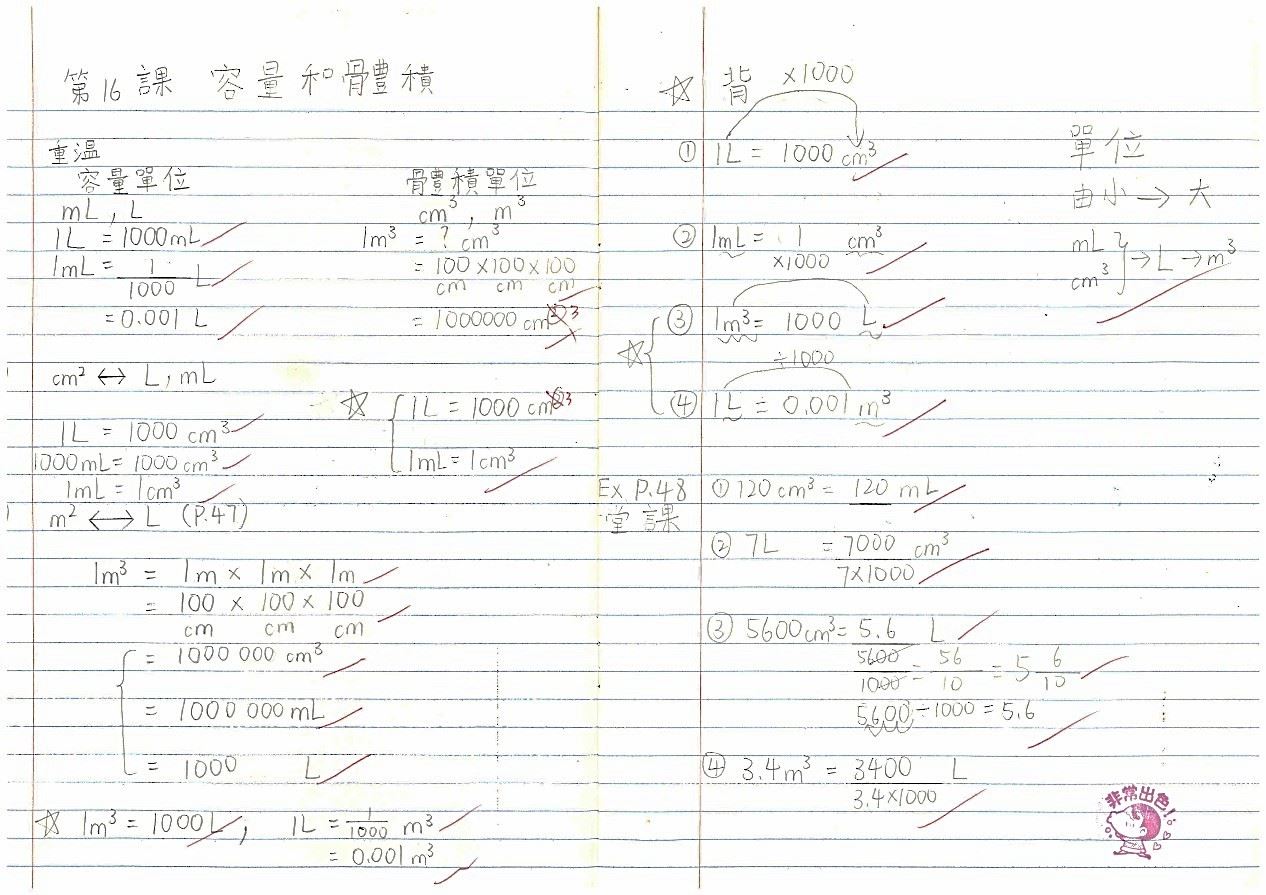 第16課 容量和體積
重温
容量單位
mL , L
1L = 1000mL
1mL = 1/1000 L
= 0.001 L
體積單位
cm³ , m³
1m³ = ? cm³
= 100 × 100 × 100
cm cm cm
= 1000000 cm³
cm² ↔ L , mL
1L = 1000 cm³
1000mL = 1000 cm³
1mL = 1cm³
☆ { 1L = 1000 cm³
1mL = 1cm³
m² ↔ L (P.47)
1m³ = 1m × 1m × 1m
= 100 × 100 × 100
cm cm cm
= 1000 000 cm³
= 1000 000 mL
= 1000 L
☆ 1m³ = 1000L , 1L = 1/1000 m³
= 0.001 m³
☆ 背 ×1000
① 1L = 1000 cm³
② 1mL = 1 cm³
×1000
③ 1m³ = 1000 L
÷1000
☆ ④ 1L = 0.001 m³
單位
由小 → 大
mL
cm³ } → L → m³
Ex P.48
堂課
① 120 cm³ = 120 mL
② 7L = 7000 cm³
7×1000
③ 5600cm³ = 5.6 L
5600/1000 = 56/10 = 5 6/10
5600 ÷ 1000 = 5.6
④ 3.4m³ = 3400 L
3.4×1000
非常出色!